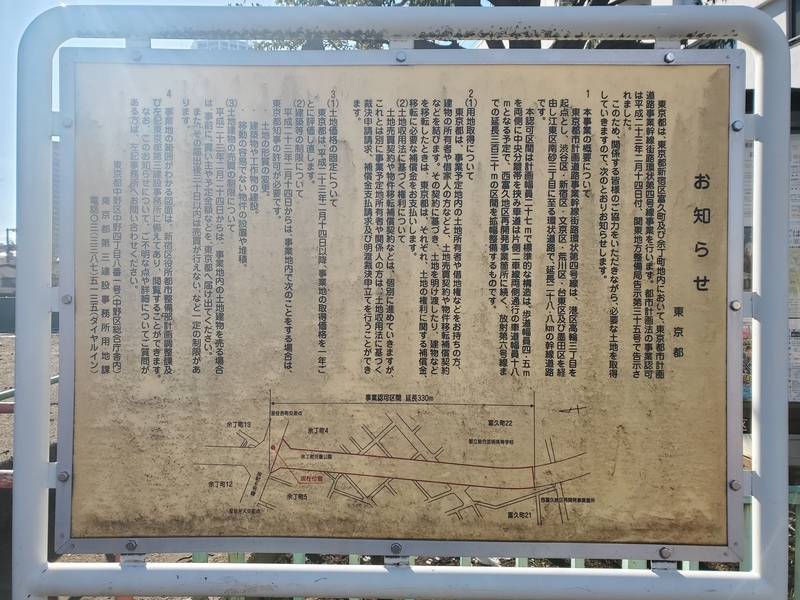 お知らせ
東京都
東京都は、東京都新宿区富久町及び余丁町地内において、東京都市計画
道路事業幹線街路環状第四号線事業を行います。都市計画法の事業認可
は平成二十三年二月十四日付、関東地方整備局告示第三十五号で告示さ
れました。
このため、関係する皆様のご協力をいただきながら、必要な土地を取得
していきますので、次のとおりお知らせします。
1 本事業の概要について
東京都市計画道路事業幹線街路環状第四号線は、港区高輪三丁目を
起点とし、渋谷区・新宿区・文京区・荒川区・台東区及び墨田区を経
由し江東区南砂三丁目に至る環状道路で、延長二十八・八kmの幹線道路
です。
本認可区間は計画幅員二十七mで標準的な構造は、歩道幅員四・五m
を両側に中央分離帯を挟み車道は片側二車線両側通行の車道幅員十八
mとなる予定で、西富久地区再開発事業箇所に続く、放射第六号線ま
での延長三百三十mの区間を拡幅整備するものです。
2 (1)用地取得について
東京都は、事業予定地内の土地所有者や借地権などをお持ちの方、
建物の所有者や借家人の方などと、土地売買契約や物件移転補償契約
などを結びます。その契約に基づき、土地を明け渡したり、建物など
を移転したときは、東京都は、それぞれ、土地の権利に関する補償金、
移転に必要な補償金をお支払いします。
(2)土地収用法に基づく権利について
土地売買契約や物件移転補償契約などは、個別に進めていきますが、
これとは別に事業予定地所有者や関係人の方は、土地収用法に基づく
裁決申請請求、補償金支払請求及び明渡裁決申立てを行うことができ
ます。
3 (1)土地価格の固定について
東京都は、平成二十三年二月十四日以降、事業地の取得価格を一年ご
とに評価し直します。
(2)建築等の制限について
平成二十三年二月十四日からは、事業地内で次のことをする場合は、
東京都知事の許可が必要です。
・土地の形質の変更。
・建物や工作物の建設。
・移動の容易でない物件の設置や堆積。
(3)土地建物の売買の制限について
平成二十三年二月二十四日からは、事業地内の土地建物を売る場合
は、事前に買い主や予定金額などを、東京都へ届け出てください。
また、その届出後三十日以内は売買が行えない、など一定の制限があ
ります。
4 事業地の範囲がわかる図面は、新宿区役所都市整備部計画調整課及
び左記東京都第三建設事務所に備えてあり、閲覧することができます。
なお、このお知らせについて、ご不明な点や詳細についてご質問が
ある方は、左記事務所へお問い合わせください。
東京都中野区中野四丁目八番一号(中野区総合庁舎内)
東京都第三建設事務所用地課
電話〇三―三三八七―五一三五(ダイヤルイン)
事業認可区間 延長330m
至住吉町交差点
余丁町13
余丁町4
富久町22
都立総合芸術高等学校
余丁町児童公園
現在位置
余丁町12
余丁町5
富久町21
西富久地区再開発事業箇所